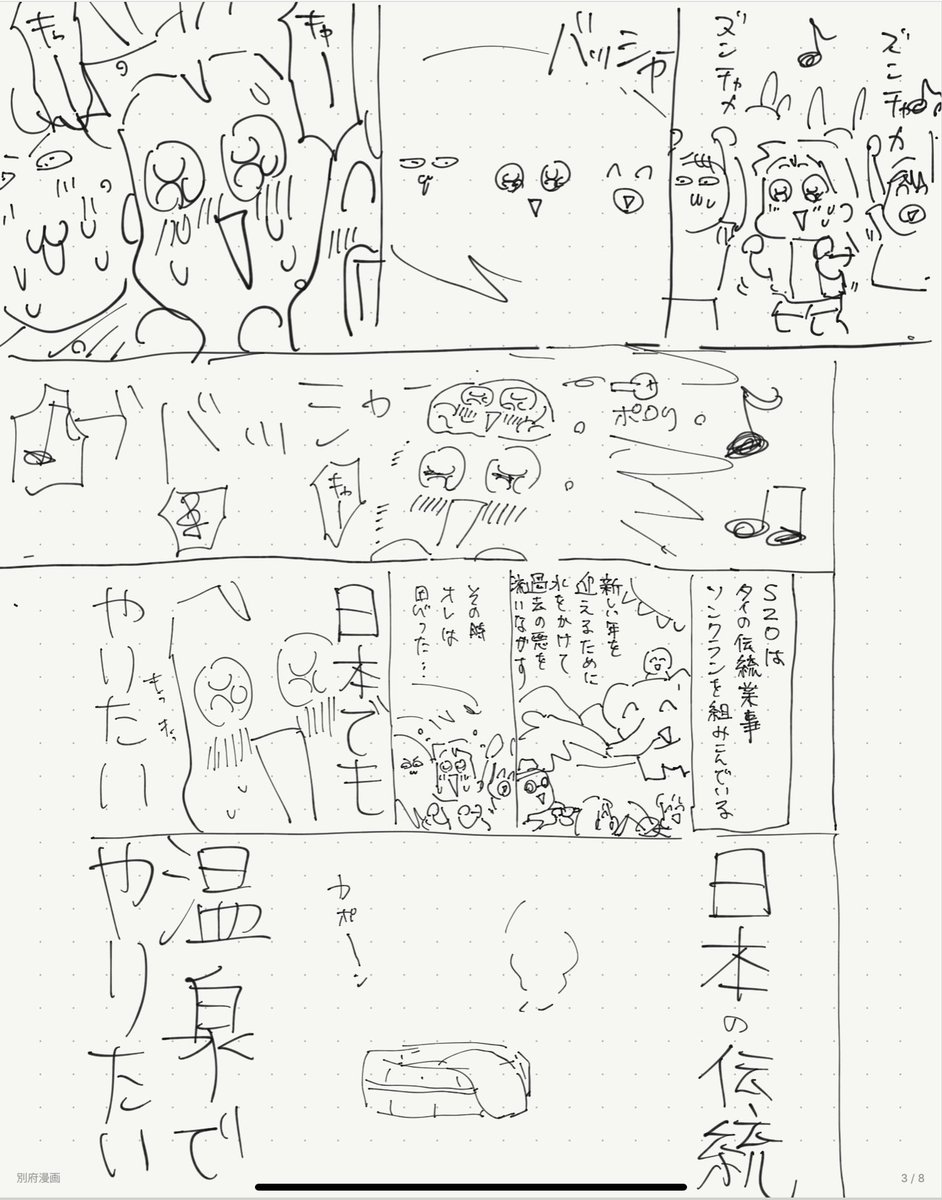 ズンチャカ
ズンチャカ
バッシャ
キャ
キャー
ポロリ
キャー
S2Oは
タイの伝統業事
ソンクランを組みこんでいる
新しい年を
迎えるために
水をかけて
過去の悪を
洗いながす
その時
オレは
思った…
日本でも
キラ
キラ
やりたい
日本の伝統
カポーン
温泉で
やりたい
別府漫画
3 / 8